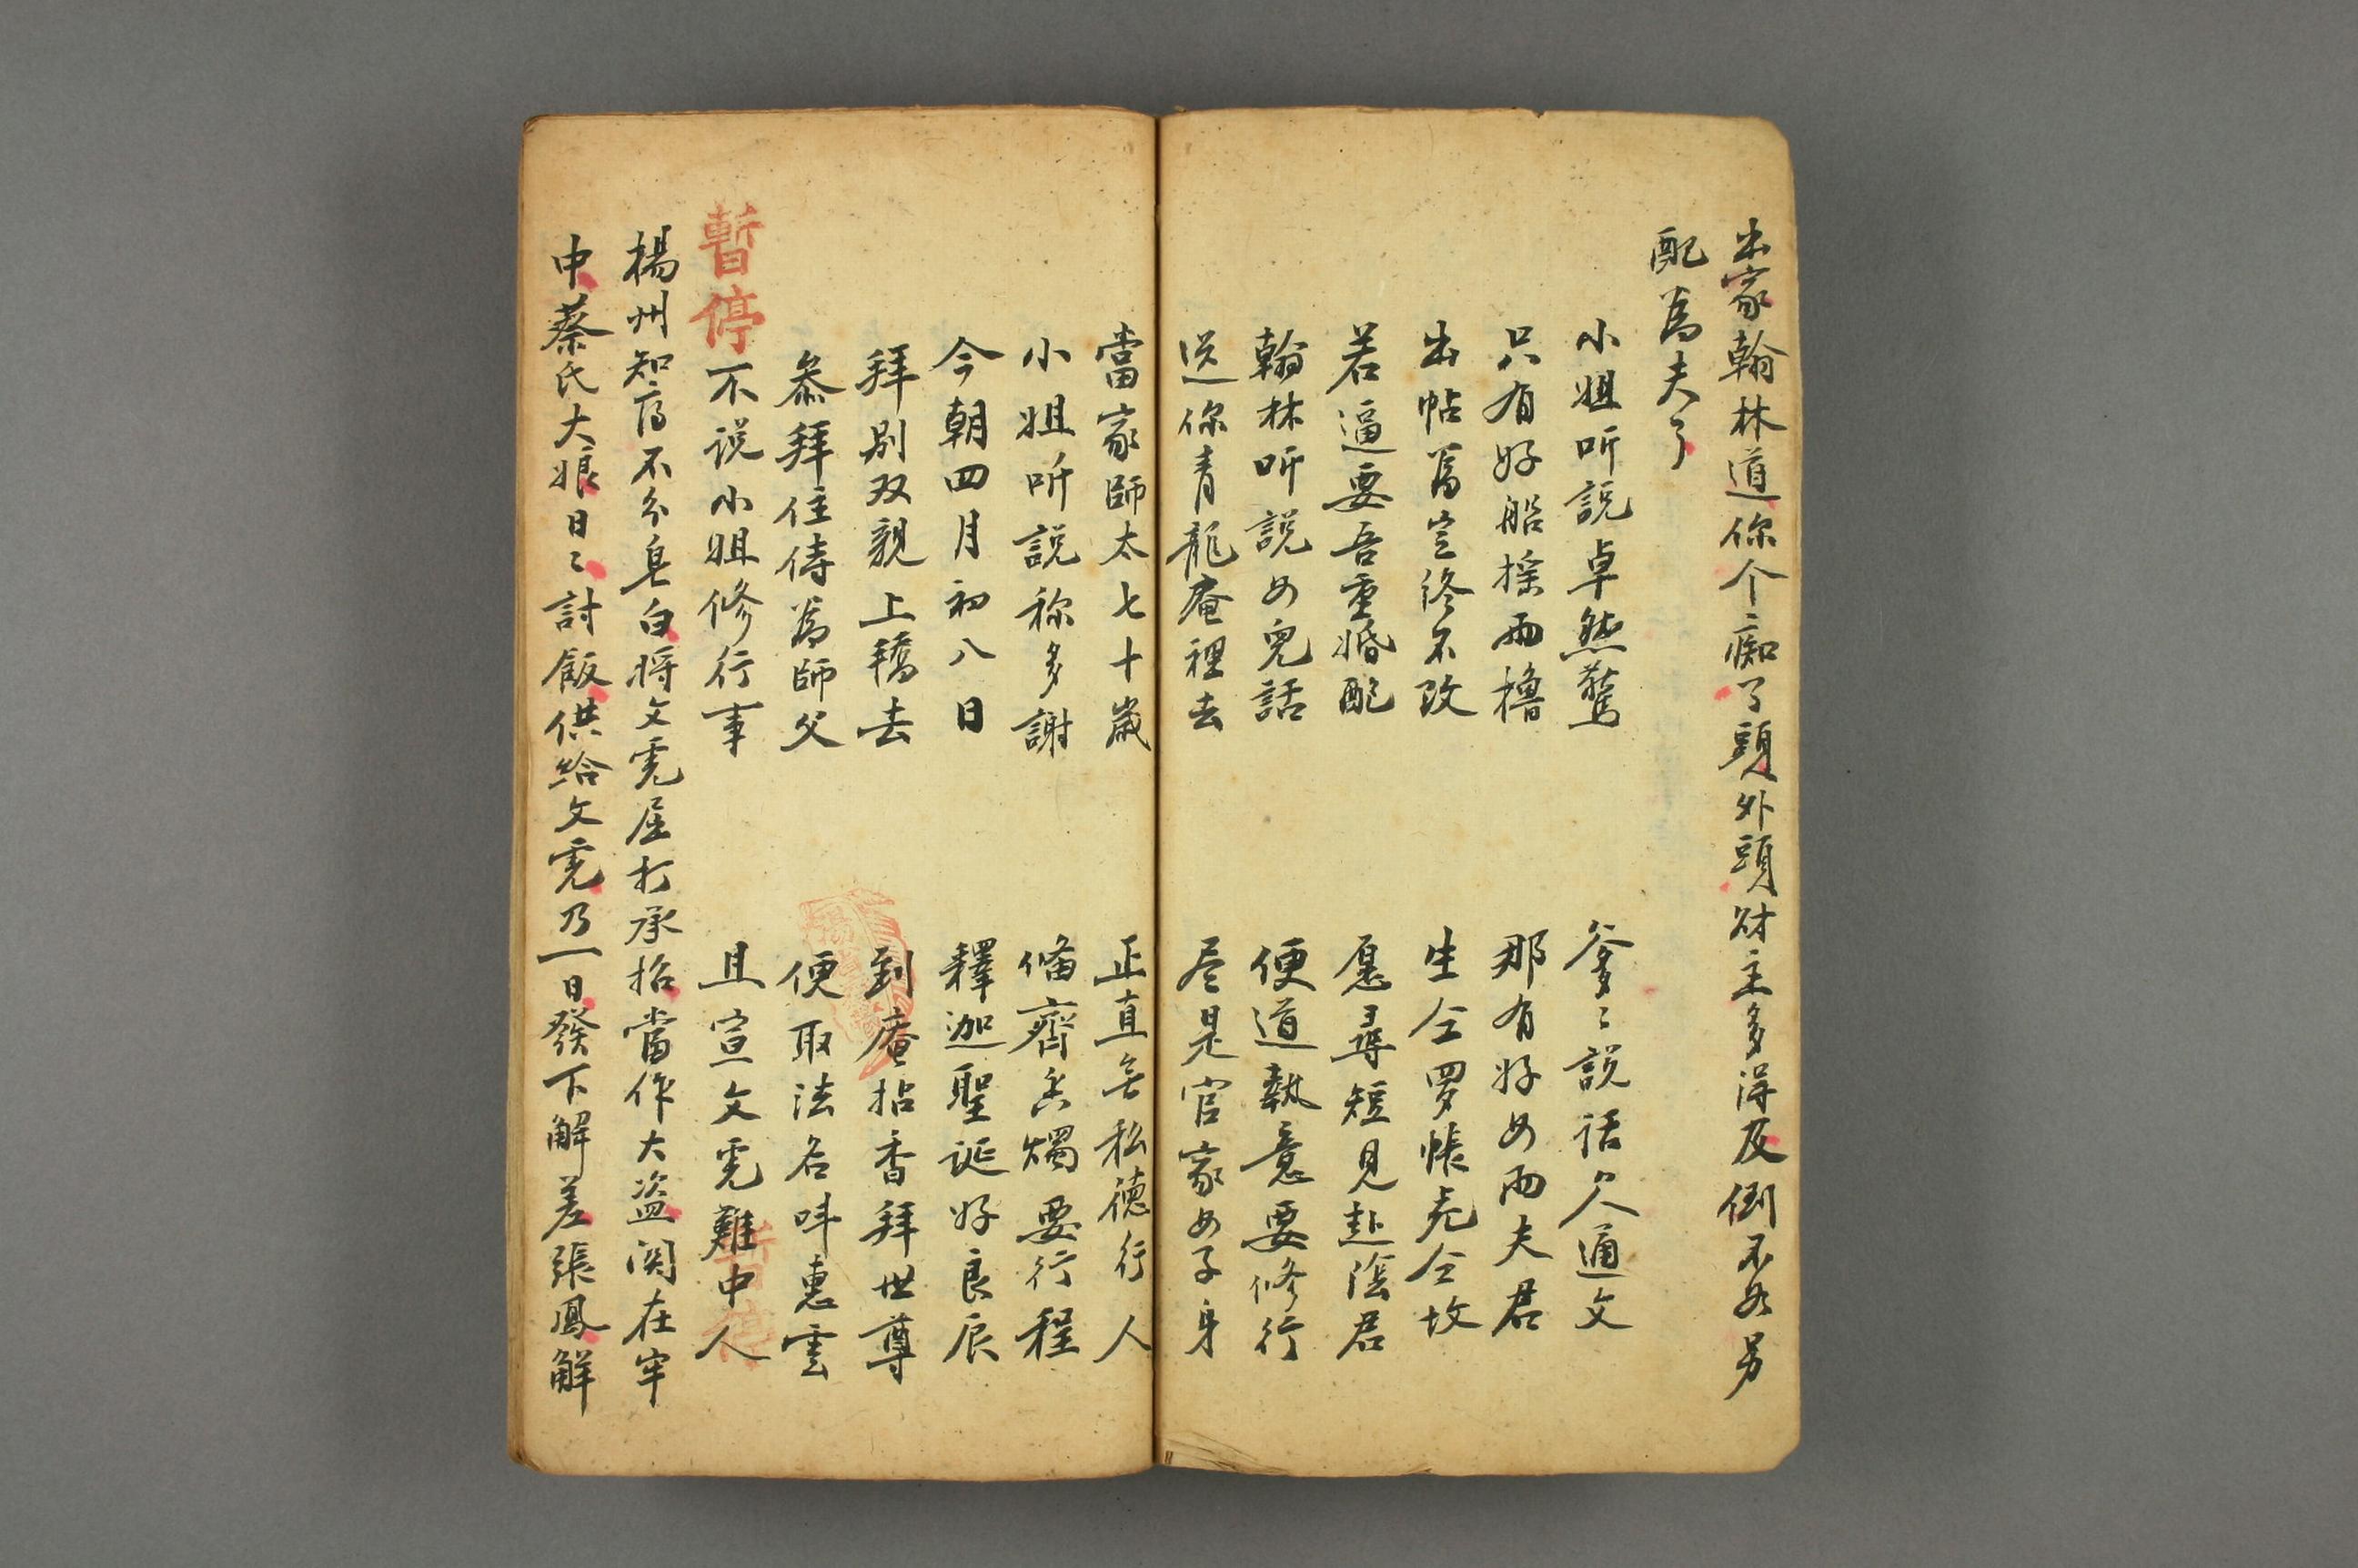 出家翰林道你个痴了頭外頭財主多得及倒不如另
配為夫了
小姐听說卓然驚　爹〻說話欠通文
只有好船搖兩櫓　那有好女兩夫君
出帖寫定終不改　生仝罗帳死仝坟
若逼要吾重婚配　愿尋短見赴陰君
翰林听說女兒話　便道執意要修行
送你青龍庵裡去　尽是官家女子身
當家師太七十歲　正直無私德行人
小姐听說称多謝　俻齊香燭要行程
今朝四月初八日　釋迦聖誕好良辰
拜别双親上轎去　到庵拈香拜世尊
叅拜住侍為師父　便取法名呌惠雲
暫停
不说小姐修行事　且宣文霓難中人
楊州知府不分皂白將文霓屈打承招當作大盗関在牢
中蔡氏大娘日〻討飯供給文霓乃一日發下解差張鳳解
暫停